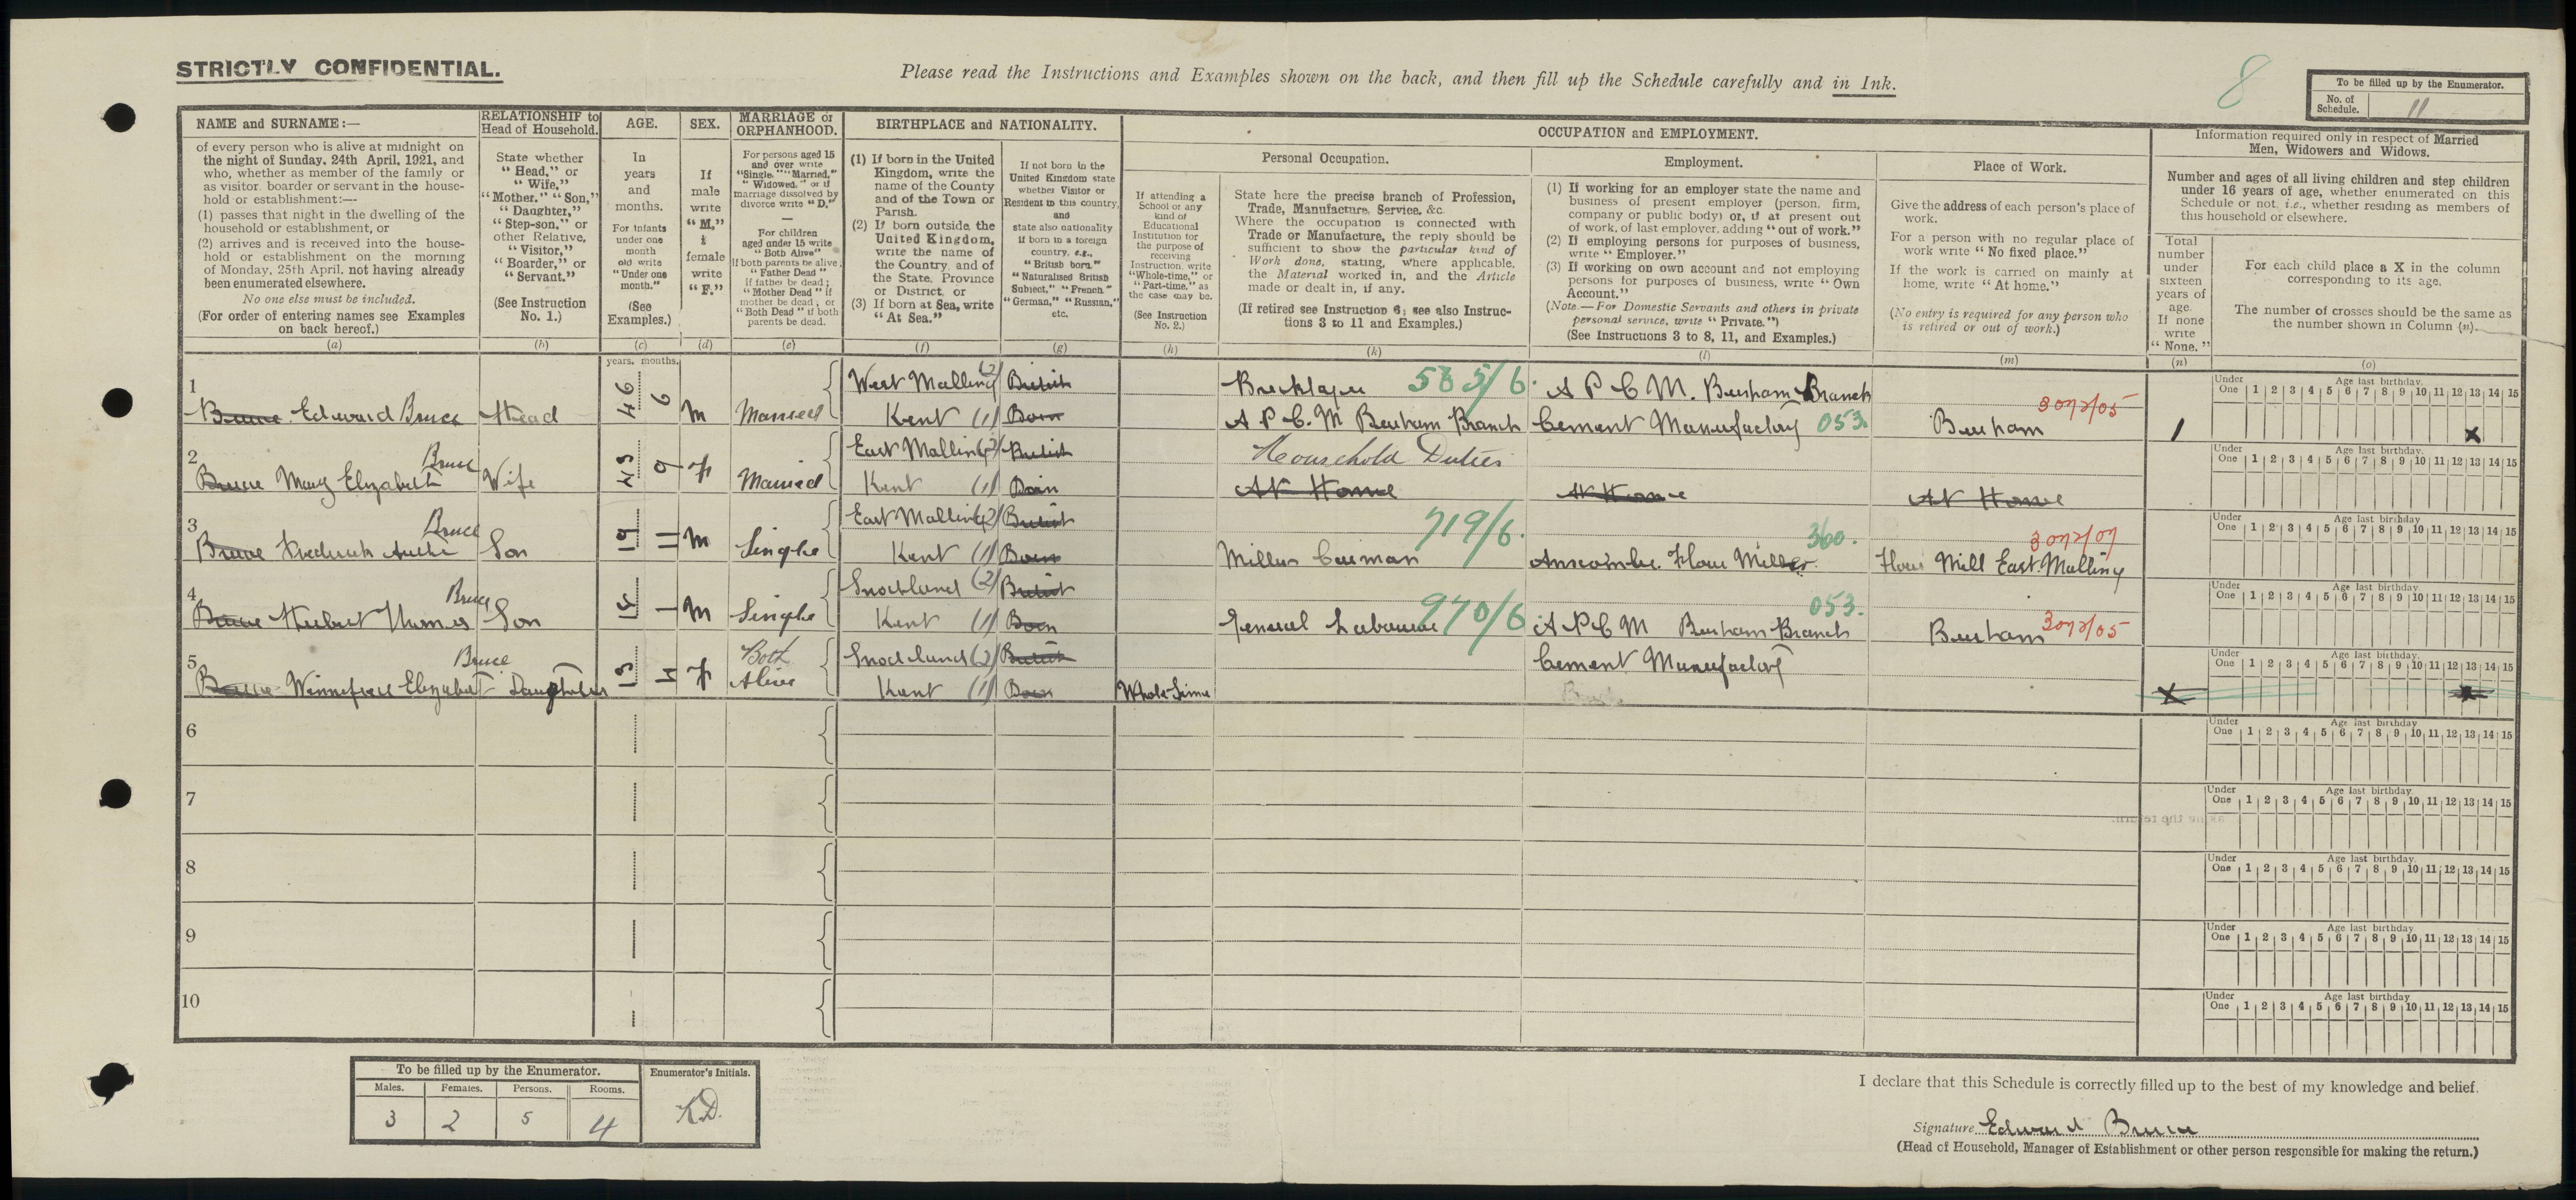 STRICTLY CONFIDENTIAL.
Please read the Instructions and Examples shown on the back, and then fill up the Schedule carefully and in Ink.
8
To be filled up by the Enumerator.
No. of Schedule. 11
NAME and SURNAME :—
of every person who is alive at midnight on
the night of Sunday, 24th April, 1921, and
who, whether as member of the family or
as visitor, boarder or servant in the house-
hold or establishment :—
(1) passes that night in the dwelling of the
household or establishment, or
(2) arrives and is received into the house-
hold or establishment on the morning
of Monday, 25th April, not having already
been enumerated elsewhere.
No one else must be included.
(For order of entering names see Examples
on back hereof.)
(a)
RELATIONSHIP to
Head of Household.
State whether
"Head," or
"Wife,"
"Mother," "Son,"
"Daughter,"
"Step-son," or
other Relative,
"Visitor,"
"Boarder," or
"Servant."
(See Instruction
No. 1.)
(b)
AGE.
In
years
and
months.
For infants
under one
month
old write
"Under one
month."
(See
Examples.)
(c)
SEX.
If
male
write
"M,"
if
female
write
"F."
(d)
MARRIAGE or
ORPHANHOOD.
For persons aged 15
and over write
"Single," "Married,"
"Widowed," or if
marriage dissolved by
divorce write "D."
—
For children
aged under 15 write
"Both Alive"
if both parents be alive;
"Father Dead"
if father be dead;
"Mother Dead" if
mother be dead; or
"Both Dead" if both
parents be dead.
(e)
BIRTHPLACE and NATIONALITY.
(1) If born in the United
Kingdom, write the
name of the County
and of the Town or
Parish.
(2) If born outside the
United Kingdom,
write the name of
the Country, and of
the State, Province
or District, or
(3) If born at Sea, write
"At Sea."
(f)
If not born in the
United Kingdom state
whether Visitor or
Resident in this country,
and
state also nationality
if born in a foreign
country, e.g.,
"British born,"
"Naturalised British
Subject," "French,"
"German," "Russian,"
etc.
(g)
OCCUPATION and EMPLOYMENT.
Personal Occupation.
If attending a
School or any
kind of
Educational
Institution for
the purpose of
receiving
Instruction, write
"Whole-time," or
"Part-time," as
the case may be.
(See Instruction
No. 2.)
(h)
State here the precise branch of Profession,
Trade, Manufacture, Service, &c.
Where the occupation is connected with
Trade or Manufacture, the reply should be
sufficient to show the particular kind of
Work done, stating, where applicable,
the Material worked in, and the Article
made or dealt in, if any.
(If retired see Instruction 6; see also Instruc-
tions 3 to 11 and Examples.)
(k)
Employment.
(1) If working for an employer state the name and
business of present employer (person, firm,
company or public body) or, if at present out
of work, of last employer, adding "out of work."
(2) If employing persons for purposes of business,
write "Employer."
(3) If working on own account and not employing
persons for purposes of business, write "Own
Account."
(Note.—For Domestic Servants and others in private
personal service, write "Private.")
(See Instructions 3 to 8, 11, and Examples.)
(l)
Place of Work.
Give the address of each person's place of
work.
For a person with no regular place of
work write "No fixed place."
If the work is carried on mainly at
home, write "At home."
(No entry is required for any person who
is retired or out of work.)
(m)
Information required only in respect of Married
Men, Widowers and Widows.
Number and ages of all living children and step children
under 16 years of age, whether enumerated on this
Schedule or not, i.e., whether residing as members of
this household or elsewhere.
Total
number
under
sixteen
years of
age.
If none
write
"None."
(n)
For each child place a X in the column
corresponding to its age.
The number of crosses should be the same as
the number shown in Column (n).
(o)
years. months.
1 Bruce Edward Bruce Head 46 6 M Married West Malling (2) Kent (1) British Born Bricklayer 585/6 A P C. M Burham Branch A P C M. Burham Branch Cement Manufactory 053. Burham 3072/05 1 X
2 Bruce Mary Elizabeth Bruce Wife 43 9 F Married East Malling (2) Kent (1) British Born Household Duties At Home At Home At Home
3 Bruce Frederick Bruce Son 19 11 M Single East Malling (2) Kent (1) British Born Millers Carman 719/6. Flour Miller 360. Flour Mill East Malling 3072/07
4 Bruce Herbert Thomas Bruce Son 15 1 M Single Snodland (2) Kent (1) British Born General Labourer 970/6 A P C M Burham Branch Cement Manufactory 053. Burham 3072/05
5 Bruce Winnefree Elizabeth Bruce Daughter 13 F Both Alive Snodland (2) Kent (1) British Born Whole Time X X
6
7
8
9
10
Under One 1 2 3 4 5 6 7 8 9 10 11 12 13 14 15
Age last birthday.
To be filled up by the Enumerator.
Males. Females. Persons. Rooms.
3 2 5 4
Enumerator's Initials.
K.D.
I declare that this Schedule is correctly filled up to the best of my knowledge and belief.
Signature Edward Bruce
(Head of Household, Manager of Establishment or other person responsible for making the return.)